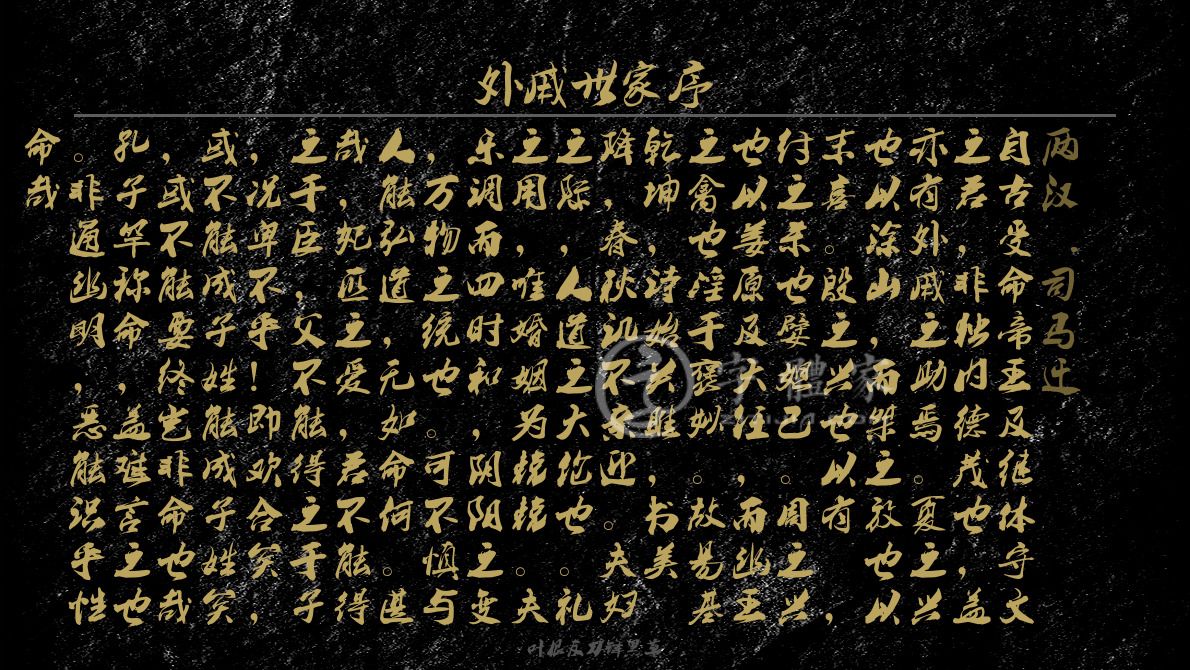 外戚世家序
两汉．司马迁
自古受命帝王及继体守文
之君，非独内德茂也，盖
亦有外戚之助焉。夏之兴
也以涂山，而桀之放也以
末喜。殷之兴也以有，
纣之杀也嬖妲己。周之兴
也以姜原及大任，而幽王
之禽也淫于褒姒。故易基
乾坤，诗始关雎，书美
降，春秋讥不亲迎。夫妇
之际，人道之大伦也。礼
之用，唯婚姻为兢兢。夫
乐调而四时和，阴阳之变
，万物之统也。可不慎与
人能弘道，无如命何。甚
哉，妃匹之爱，君不能得
之于臣，父不能得之于子
，况卑不乎！即欢合矣，
或不能成子姓，能成子姓矣
，或不能要终，岂非命也哉
孔子罕称命，盖难言之也
。非通幽明，恶能识乎性
命哉
字體家
叶根友刀锋黑草